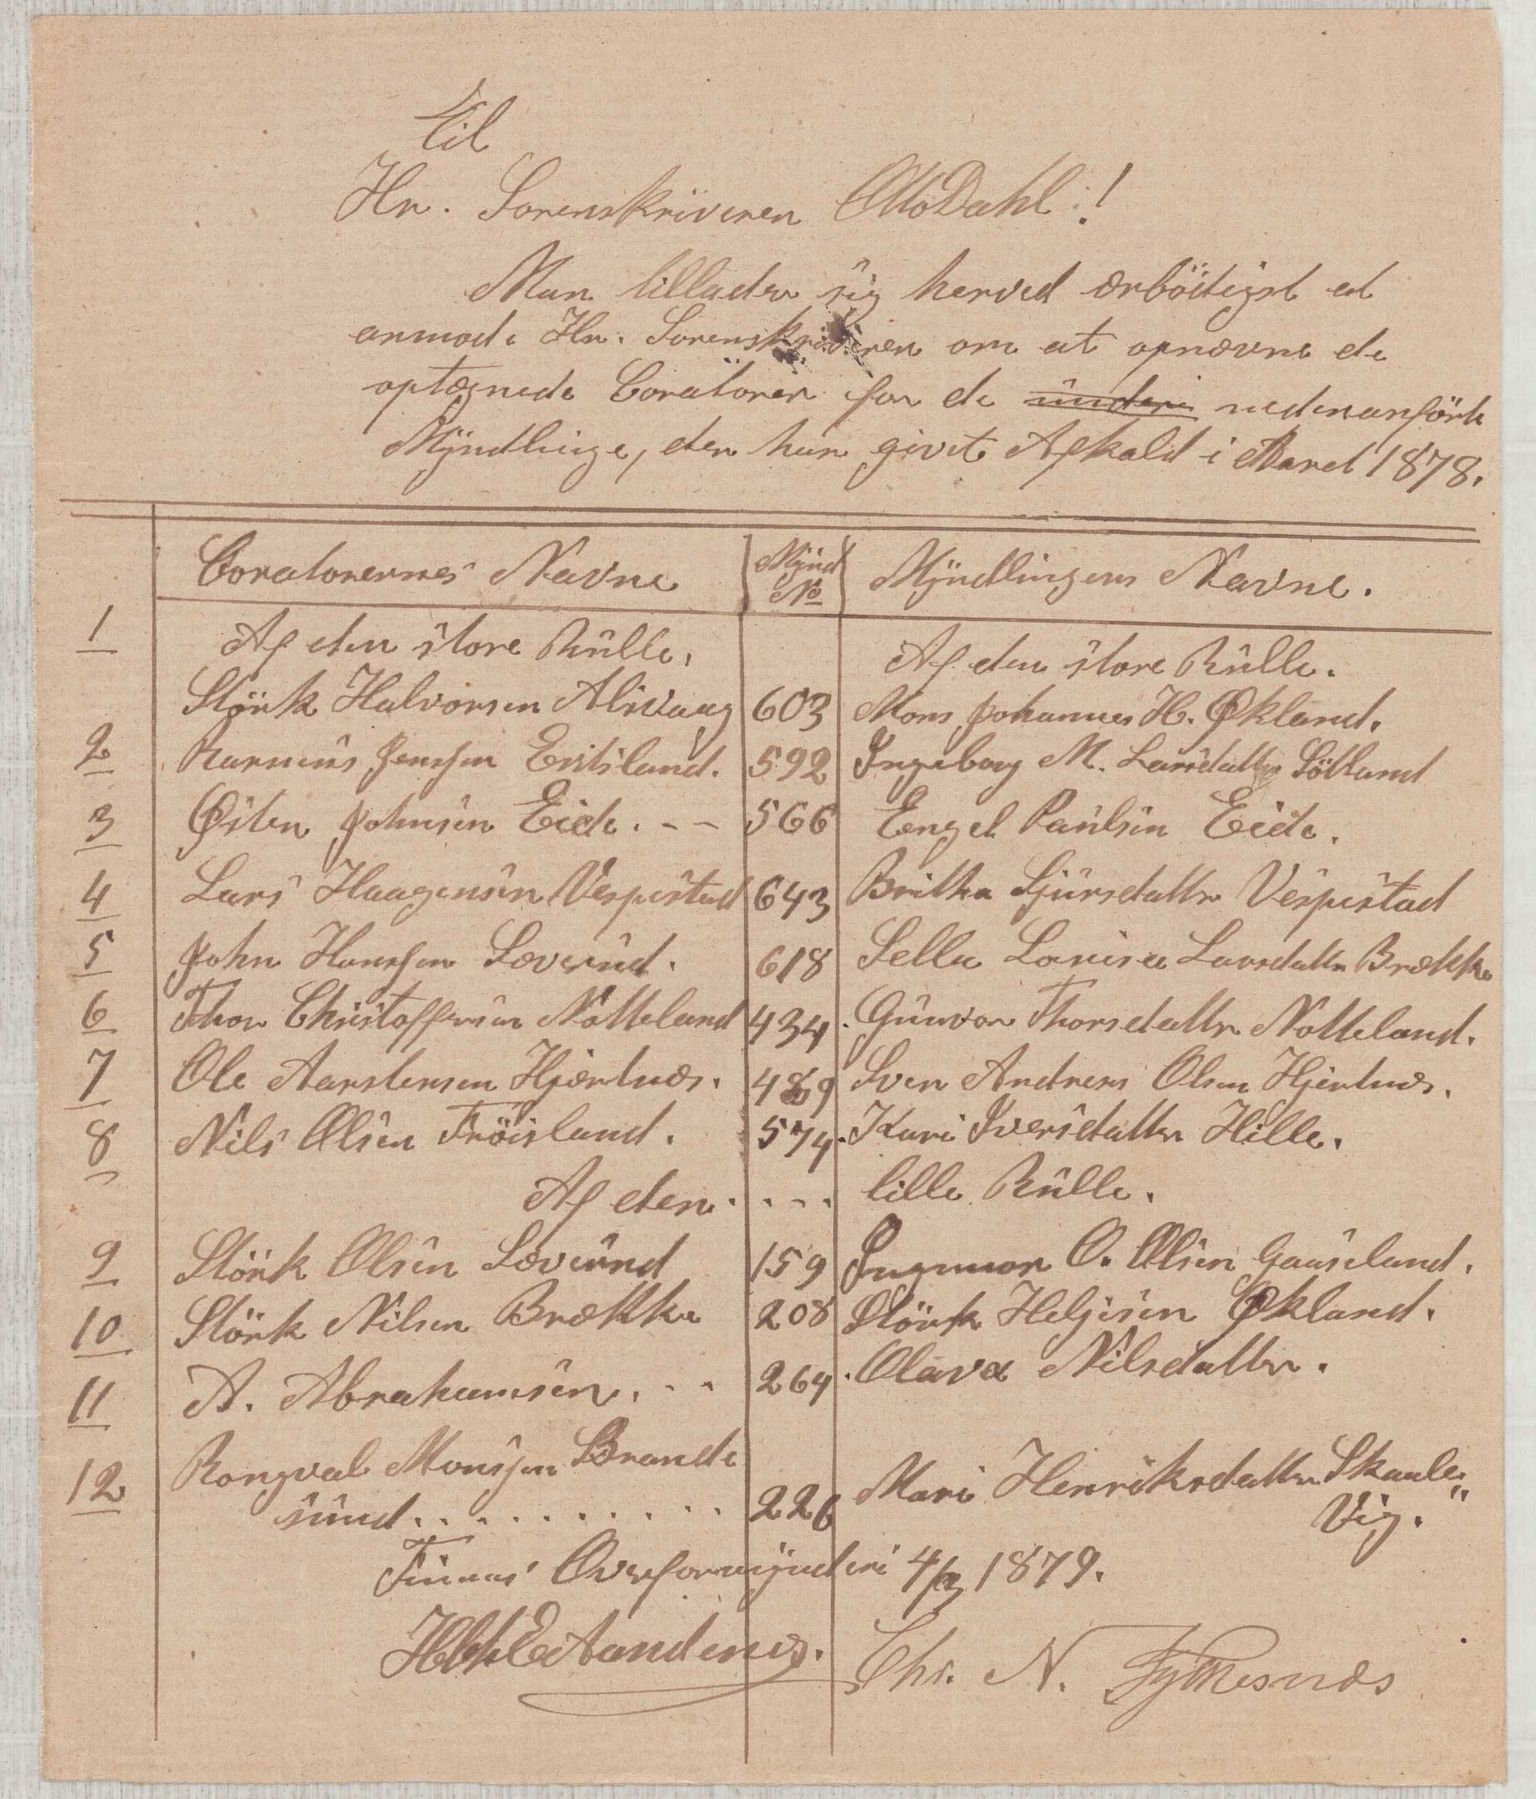 Til
Hr. Sorenskriveren Otto Dahl!
Man tillader sig herved ærbödigst at
anmode Hr. Sorenskriveren om at opnævne de
optegnede Coratorer for de under nedenanförte
Myndlinge, der har givet Afkald i Aaret 1878.
Coratorernes Navne Mynd No Myndlingens Navne.
1 Af den store Rulle. Af den store Rulle.
Störk Halvorsen Alsvaag 603 Mons Johannes H. Økland.
2 Rasmus Jenssen Eidsland. 592 Ingeborg M. Larsdatter Lölland
3 Østen Johnsen Eide. -- 566 Engel Paulsen Eide.
4 Lars Haagensen Vespestad 643 Britha Sjursdattr Vespestad
5 John Hanssen Sævrund. 618 Sella Lovisa Larsdattr Brække
6 Thor Christoffersen Notteland 434. Gunvor Thorsdattr Notteland.
7 Ole Aarstensen Hjertnæs. 489 Sven Andreas Olsen Hjertnæs.
8 Nils Olsen Fröisland. 574. Kari Iversdattr Hille.
Af den. ... lille Rulle.
9 Störk Olsen Sæverund 159 O. Olsen Gaaseland.
10 Störk Nilsen Brække 208 Störk Helgesen Økland.
11 A. Abrahamsen. -- 264. Olava Nilsdattr.
Rongval Monssen Brande
12 sund......... 226 Mari Henriksdattr Skaale"
Vig.
Finaas Overformynderi 4/3 1879.
Chr. N. Tyrnesnæs